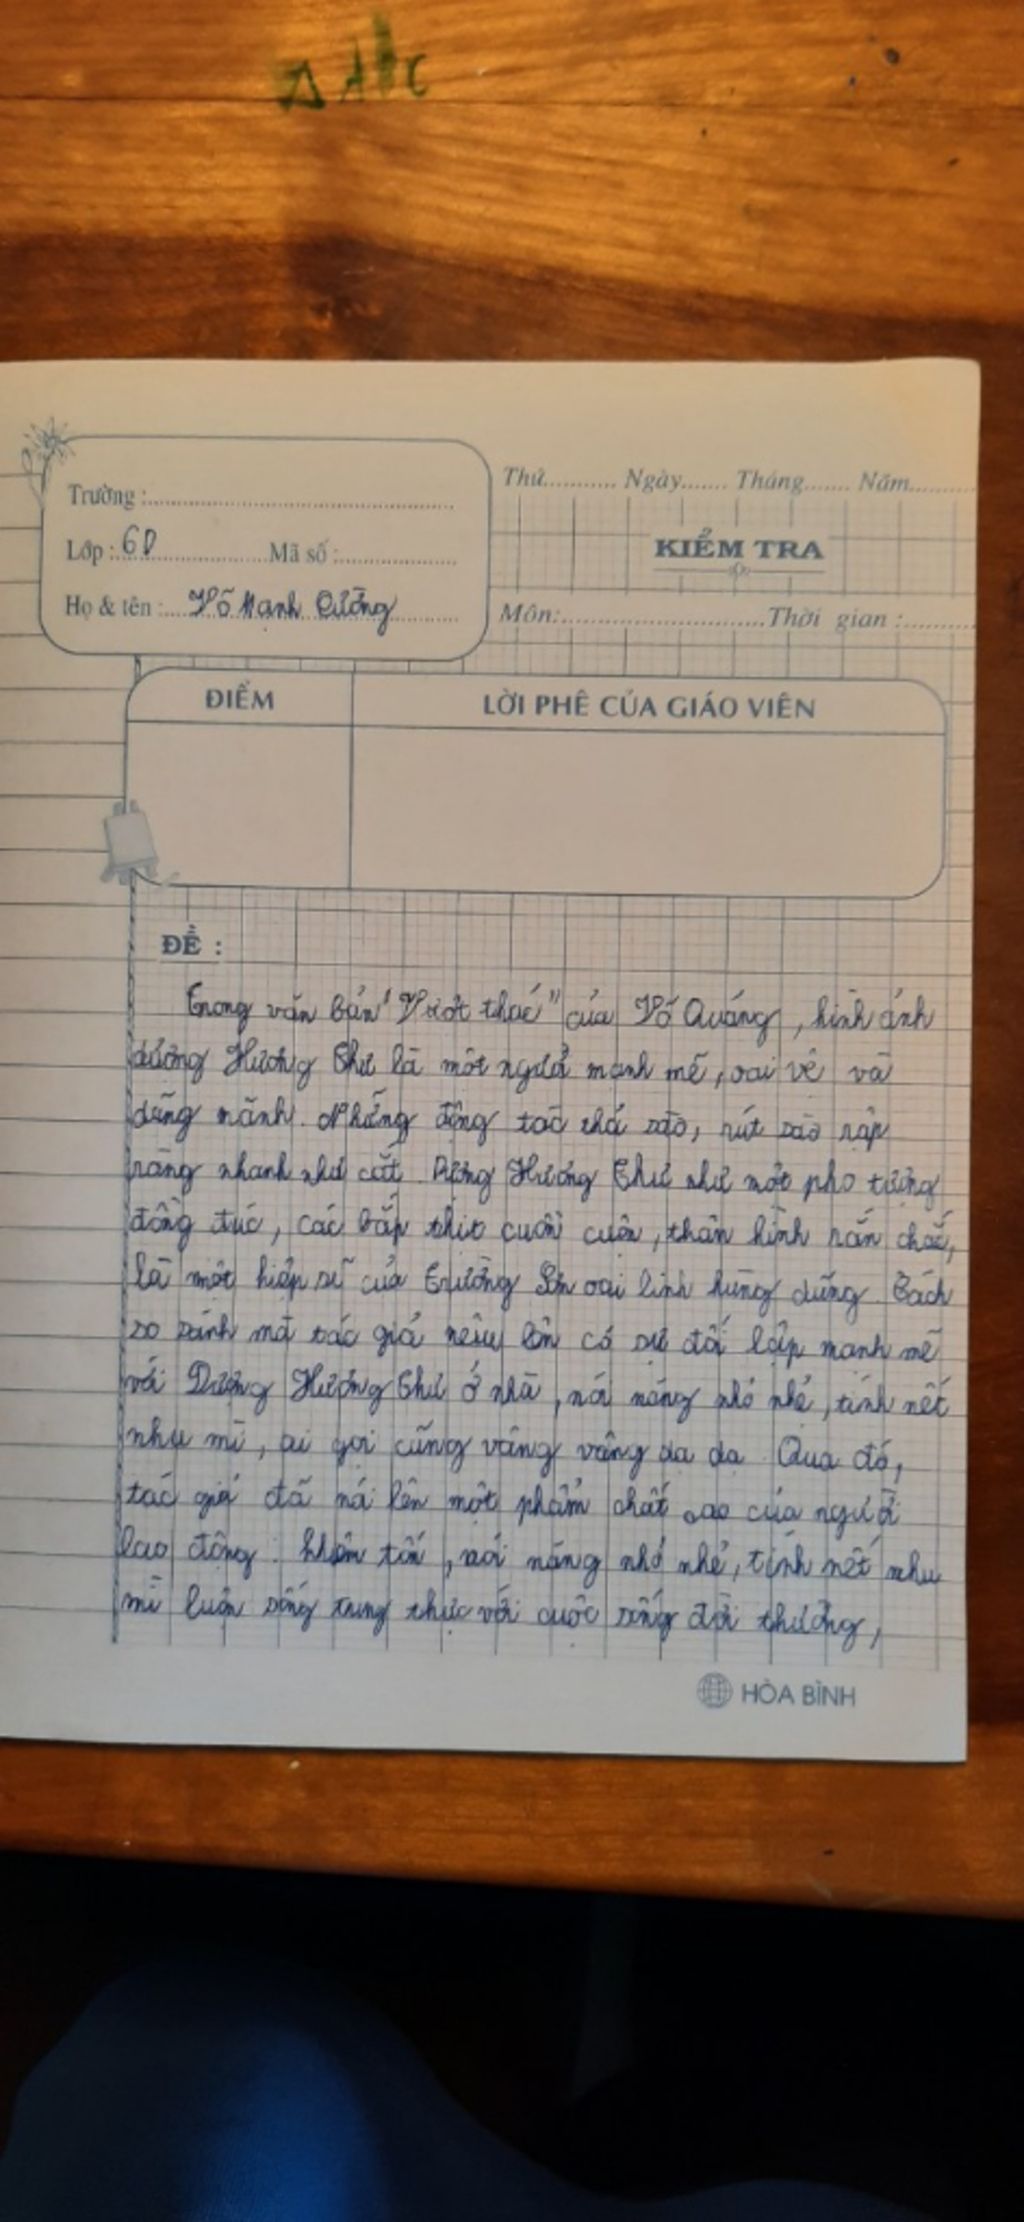 ABC
Thứ........... Ngày....... Tháng....... Năm..........
Trường :
Lớp : 6D Mã số :
KIỂM TRA
Họ & tên : Võ Mạnh Cường
Môn: Thời gian :
ĐIỂM
LỜI PHÊ CỦA GIÁO VIÊN
ĐỀ :
Trong văn bản "Vượt thác" của Võ Quảng, hình ảnh
dượng Hương Thư là một người mạnh mẽ, oai vệ và
dũng mãnh. Những động tác thả sào, rút sào rập
ràng nhanh như cắt. Dượng Hương Thư như một pho tượng
đồng đúc, các bắp thịt cuồn cuộn, thân hình rắn chắc,
là một hiệp sĩ của Trường Sơn oai linh hùng dũng. Cách
so sánh mà tác giả nêu lên có sự đối lập mạnh mẽ
với Dượng Hương Thư ở nhà, nói năng nhỏ nhẻ, tính nết
nhu mì, ai gọi cũng vâng vâng dạ dạ. Qua đó,
tác giả đã nói lên một phẩm chất cao của người
lao động: khiêm tốn, nói năng nhỏ nhẻ, tính nết nhu
mì luôn sống trung thực với cuộc sống đời thường,
HÒA BÌNH